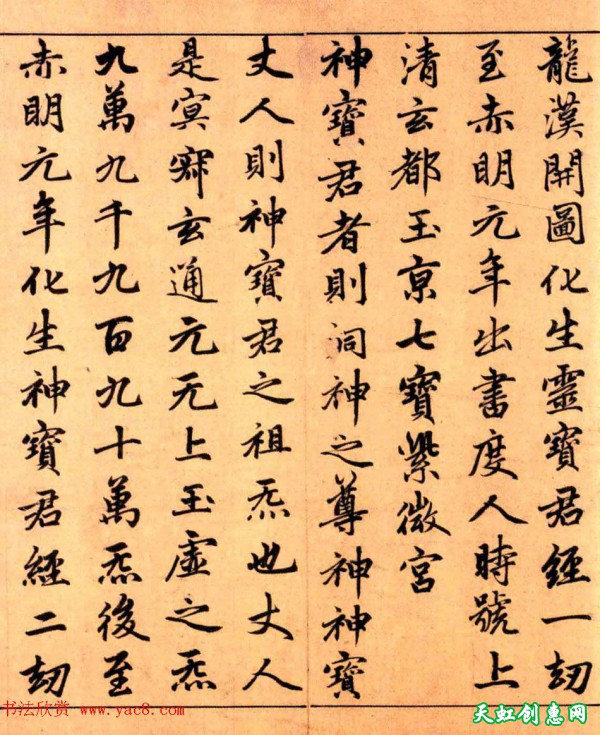 龍漢開圖化生靈寶君經一刧
至赤明元年出書度人時號上
清玄都玉京七寶紫微宮
神寶君者則洞神之尊神神寶
丈人則神寶君之祖炁也丈人
是寘寂玄通元无上玉虛之炁
九萬九千九百九十萬炁後至
赤明元年化生神寶君經二刧
书法欣赏 www.yac8.com
天虹创惠网